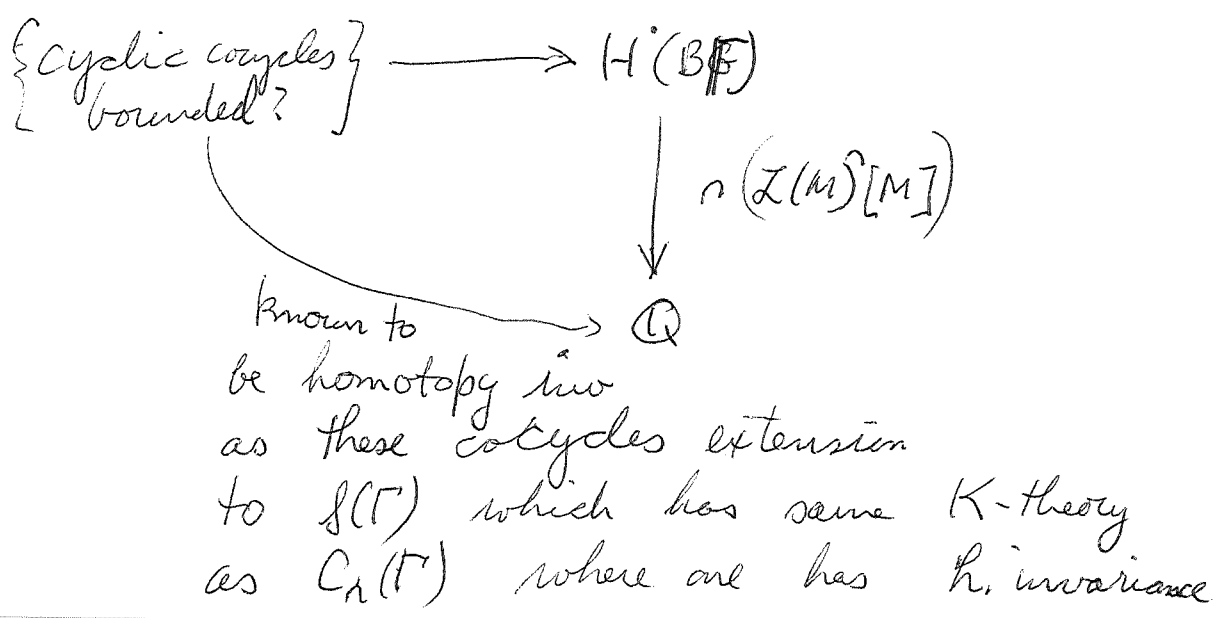 {cyclic cocycles} → H·(BΓ)
bounded?
∩(L(M)^[M])
known to → Q
be homotopy inv
as these cocycles extension
to S(Γ) which has same K-theory
as Cr(Γ) where one has h. invariance